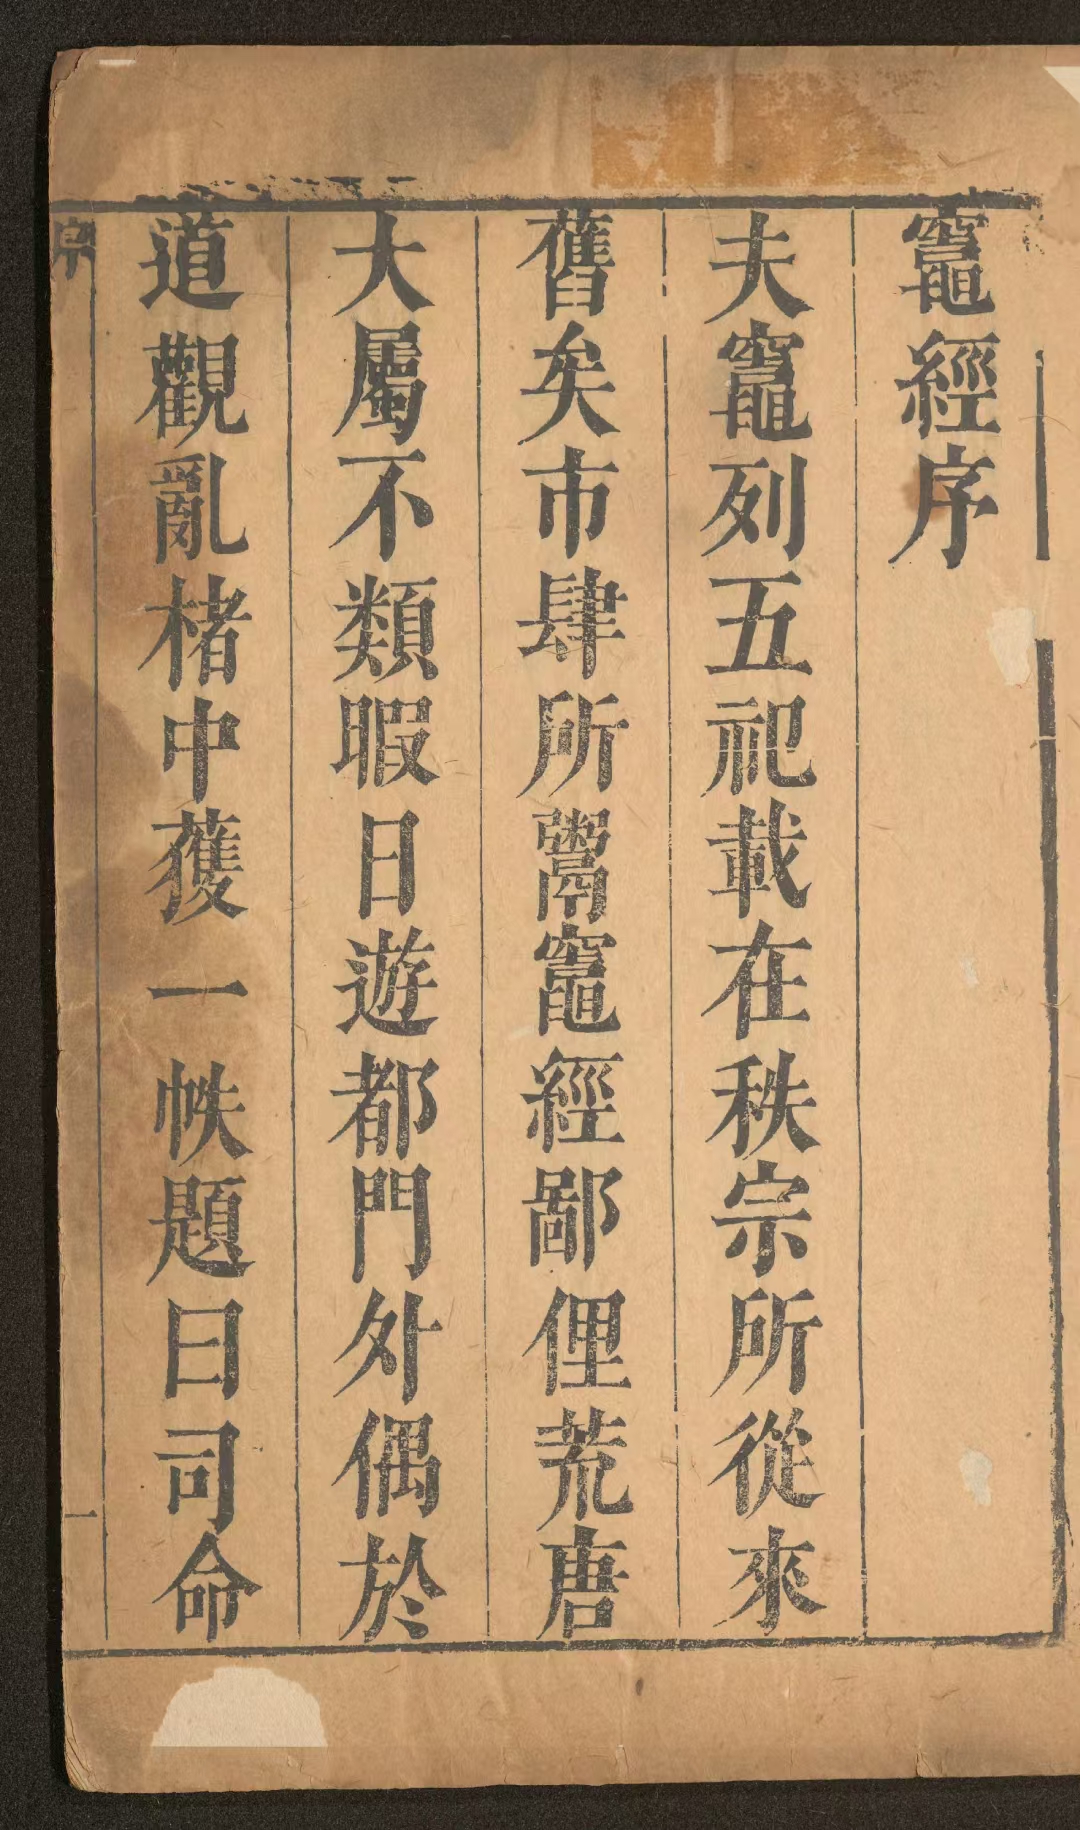 竈經序
夫竈列五祀載在秩宗所從來
舊矣市肆所鬻竈經鄙俚荒唐
大屬不類暇日遊都門外偶於
道觀亂楮中獲一帙題曰司命
序
一